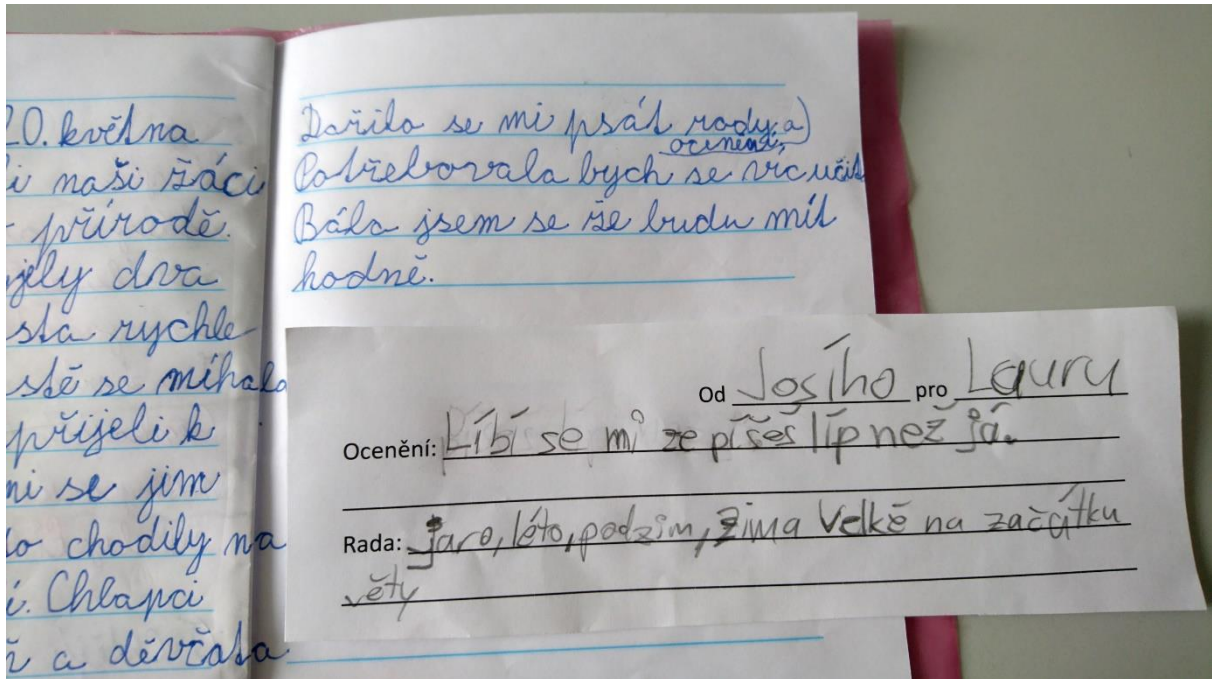 20. května
i naši žáci
přírodě.
jely dva
sta rychle
stě se míhalo
přijeli k
ni se jim
o chodily na
í. Chlapci
a děvčata
Dařilo se mi psát rady a
ocenění,
Potřebovala bych se víc učit
Bála jsem se že budu mít
hodně.
Od Josího pro Lauru
Ocenění: Líbí se mi ze píšeš líp než já.
Rada: jaro, léto, podzim, zima Velké na začátku
věty